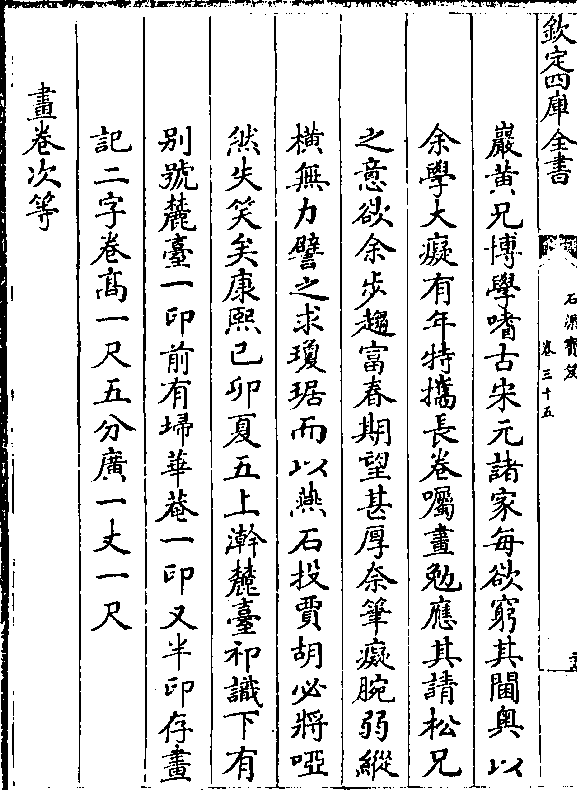 欽定四庫全書
石渠寳笈
卷三十五
巖黄兄博學嗜古宋元諸家每欲窮其閫奥以
余學大癡有年特攜長卷囑畫勉應其請松兄
之意欲余步趨富春期望甚厚奈筆癡腕弱縱
横無力譬之求瓊琚而以燕石投賈胡必將啞
然失笑矣康熙己卯夏五上澣麓臺祁識下有
别號麓臺一印前有埽華菴一印又半印存畫
記二字卷髙一尺五分廣一丈一尺
畫卷次等